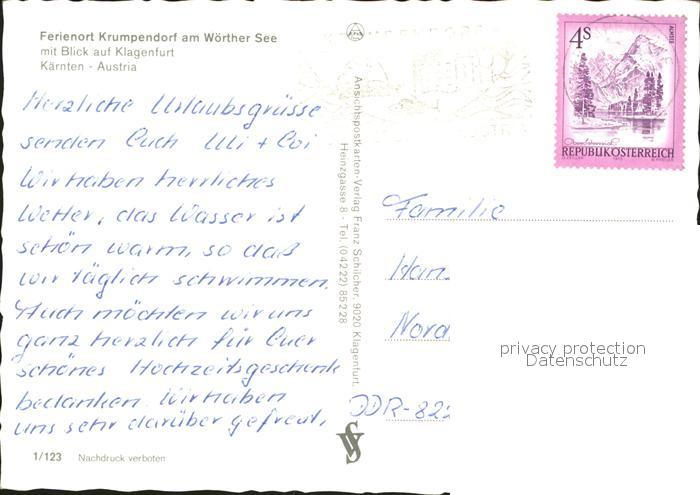 Ferienort Krumpendorf am Wörther See
mit Blick auf Klagenfurt
Kärnten - Austria
Herzliche Urlaubsgrüsse
senden Euch Uli + Evi
Wir haben herrliches
Wetter, das Wasser ist
schön warm, so daß
wir täglich schwimmen.
Auch möchten wir uns
ganz herzlich für Euer
schönes Hochzeitsgeschenk
bedanken. Wir haben
uns sehr darüber gefreut,
1/123 Nachdruck verboten
Ansichtspostkarten-Verlag Franz Schilcher, 9020 Klagenfurt,
Heinzgasse 8 - Tel. (04222) 85228
4S
ALMSEE
REPUBLIK ÖSTERREICH
Familie
Han
Nora
DDR-822
privacy protection
Datenschutz